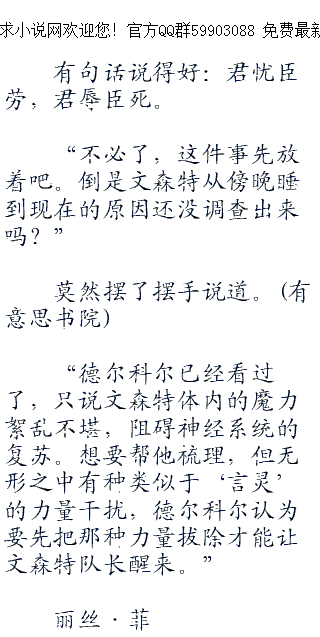 求小说网欢迎您! 官方QQ群59903088 免费最新
有句话说得好：君忧臣
劳，君辱臣死。
“不必了，这件事先放
着吧。倒是文森特从傍晚睡
到现在的原因还没调查出来
吗？”
莫然摆了摆手说道。（有
意思书院）
“德尔科尔已经看过
了，只说文森特体内的魔力
絮乱不堪，阻碍神经系统的
复苏。想要帮他梳理，但无
形之中有种类似于‘言灵’
的力量干扰，德尔科尔认为
要先把那种力量拔除才能让
文森特队长醒来。”
丽丝·菲